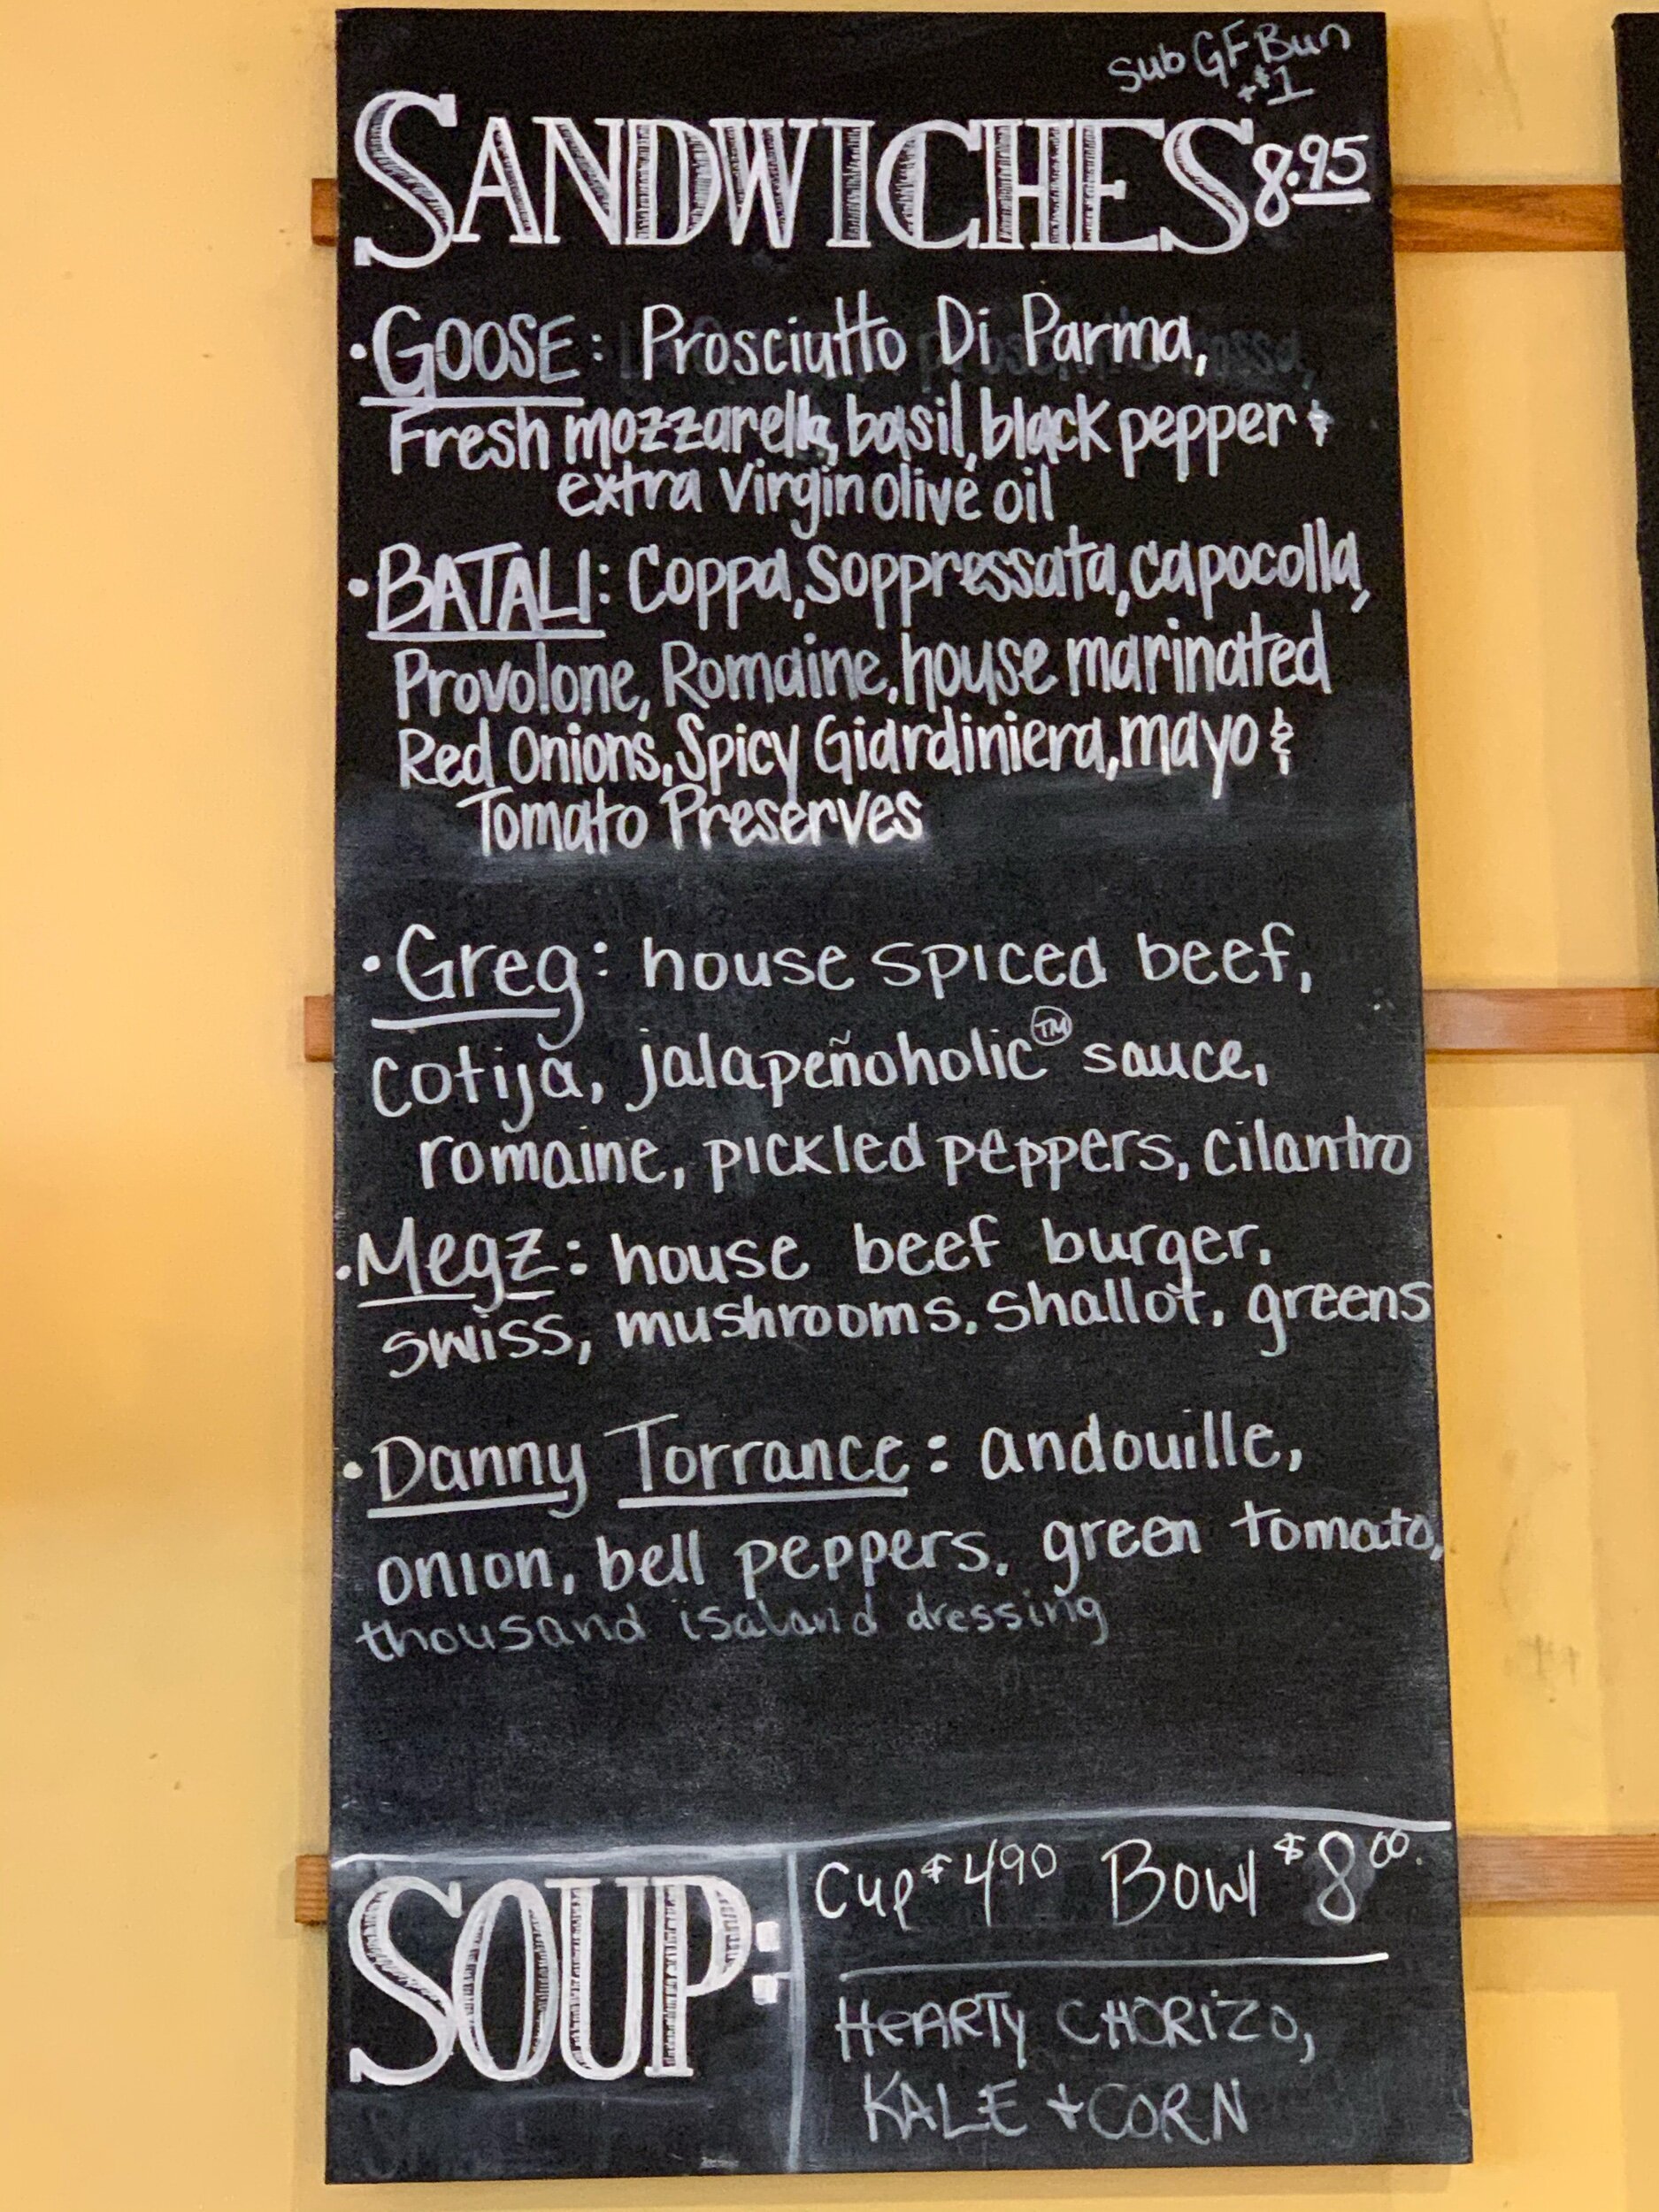 Sub GF Bun
+$1
SANDWICHES 8.95
• GOOSE: Prosciutto Di Parma,
Fresh mozzarella, basil, black pepper &
extra virgin olive oil
• BATALI: Coppa, Soppressata, capocolla,
Provolone, Romaine, house marinated
Red Onions, Spicy Giardiniera, mayo &
Tomato Preserves
• Greg: house spiced beef,
cotija, jalapeñoholic™ sauce,
romaine, pickled peppers, cilantro
• Megz: house beef burger,
swiss, mushrooms, shallot, greens
• Danny Torrance: andouille,
onion, bell peppers, green tomato,
thousand isaland dressing
SOUP:
Cup $4.90 Bowl $8.00
HEARTY CHORIZO,
KALE + CORN